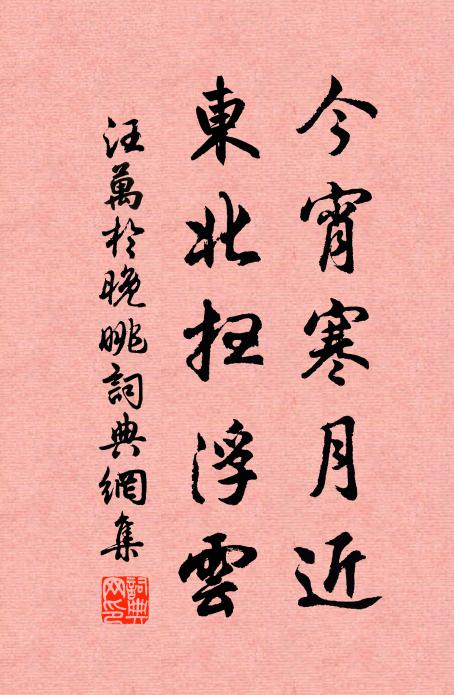 今宵寒月近
東北扫浮雲
汪萬於晚眺詞典網集
詞典网印